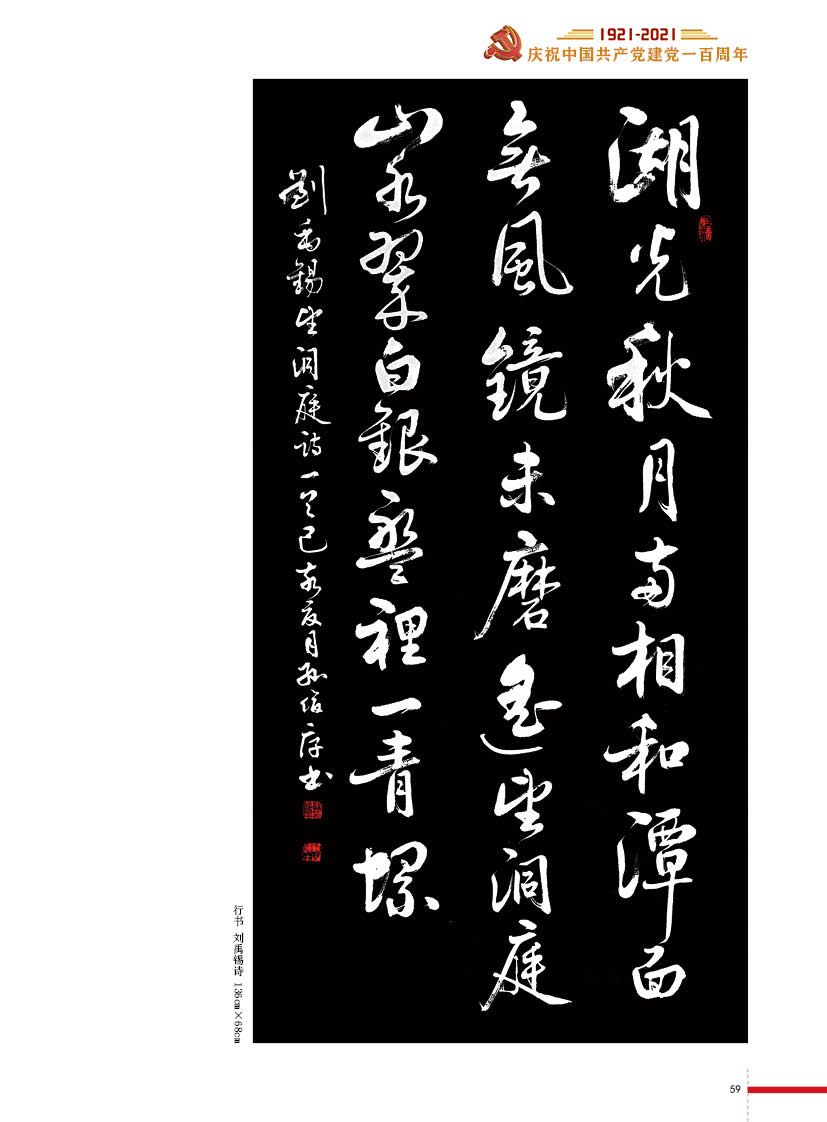 1921-2021
庆祝中国共产党建党一百周年
湖光秋月两相和潭面
無風鏡未磨遥望洞庭
山水翠白銀盤裡一青螺
劉禹錫望洞庭詩一首己亥夏月孙俊序书
行书 刘禹锡诗 136cm×68cm
59